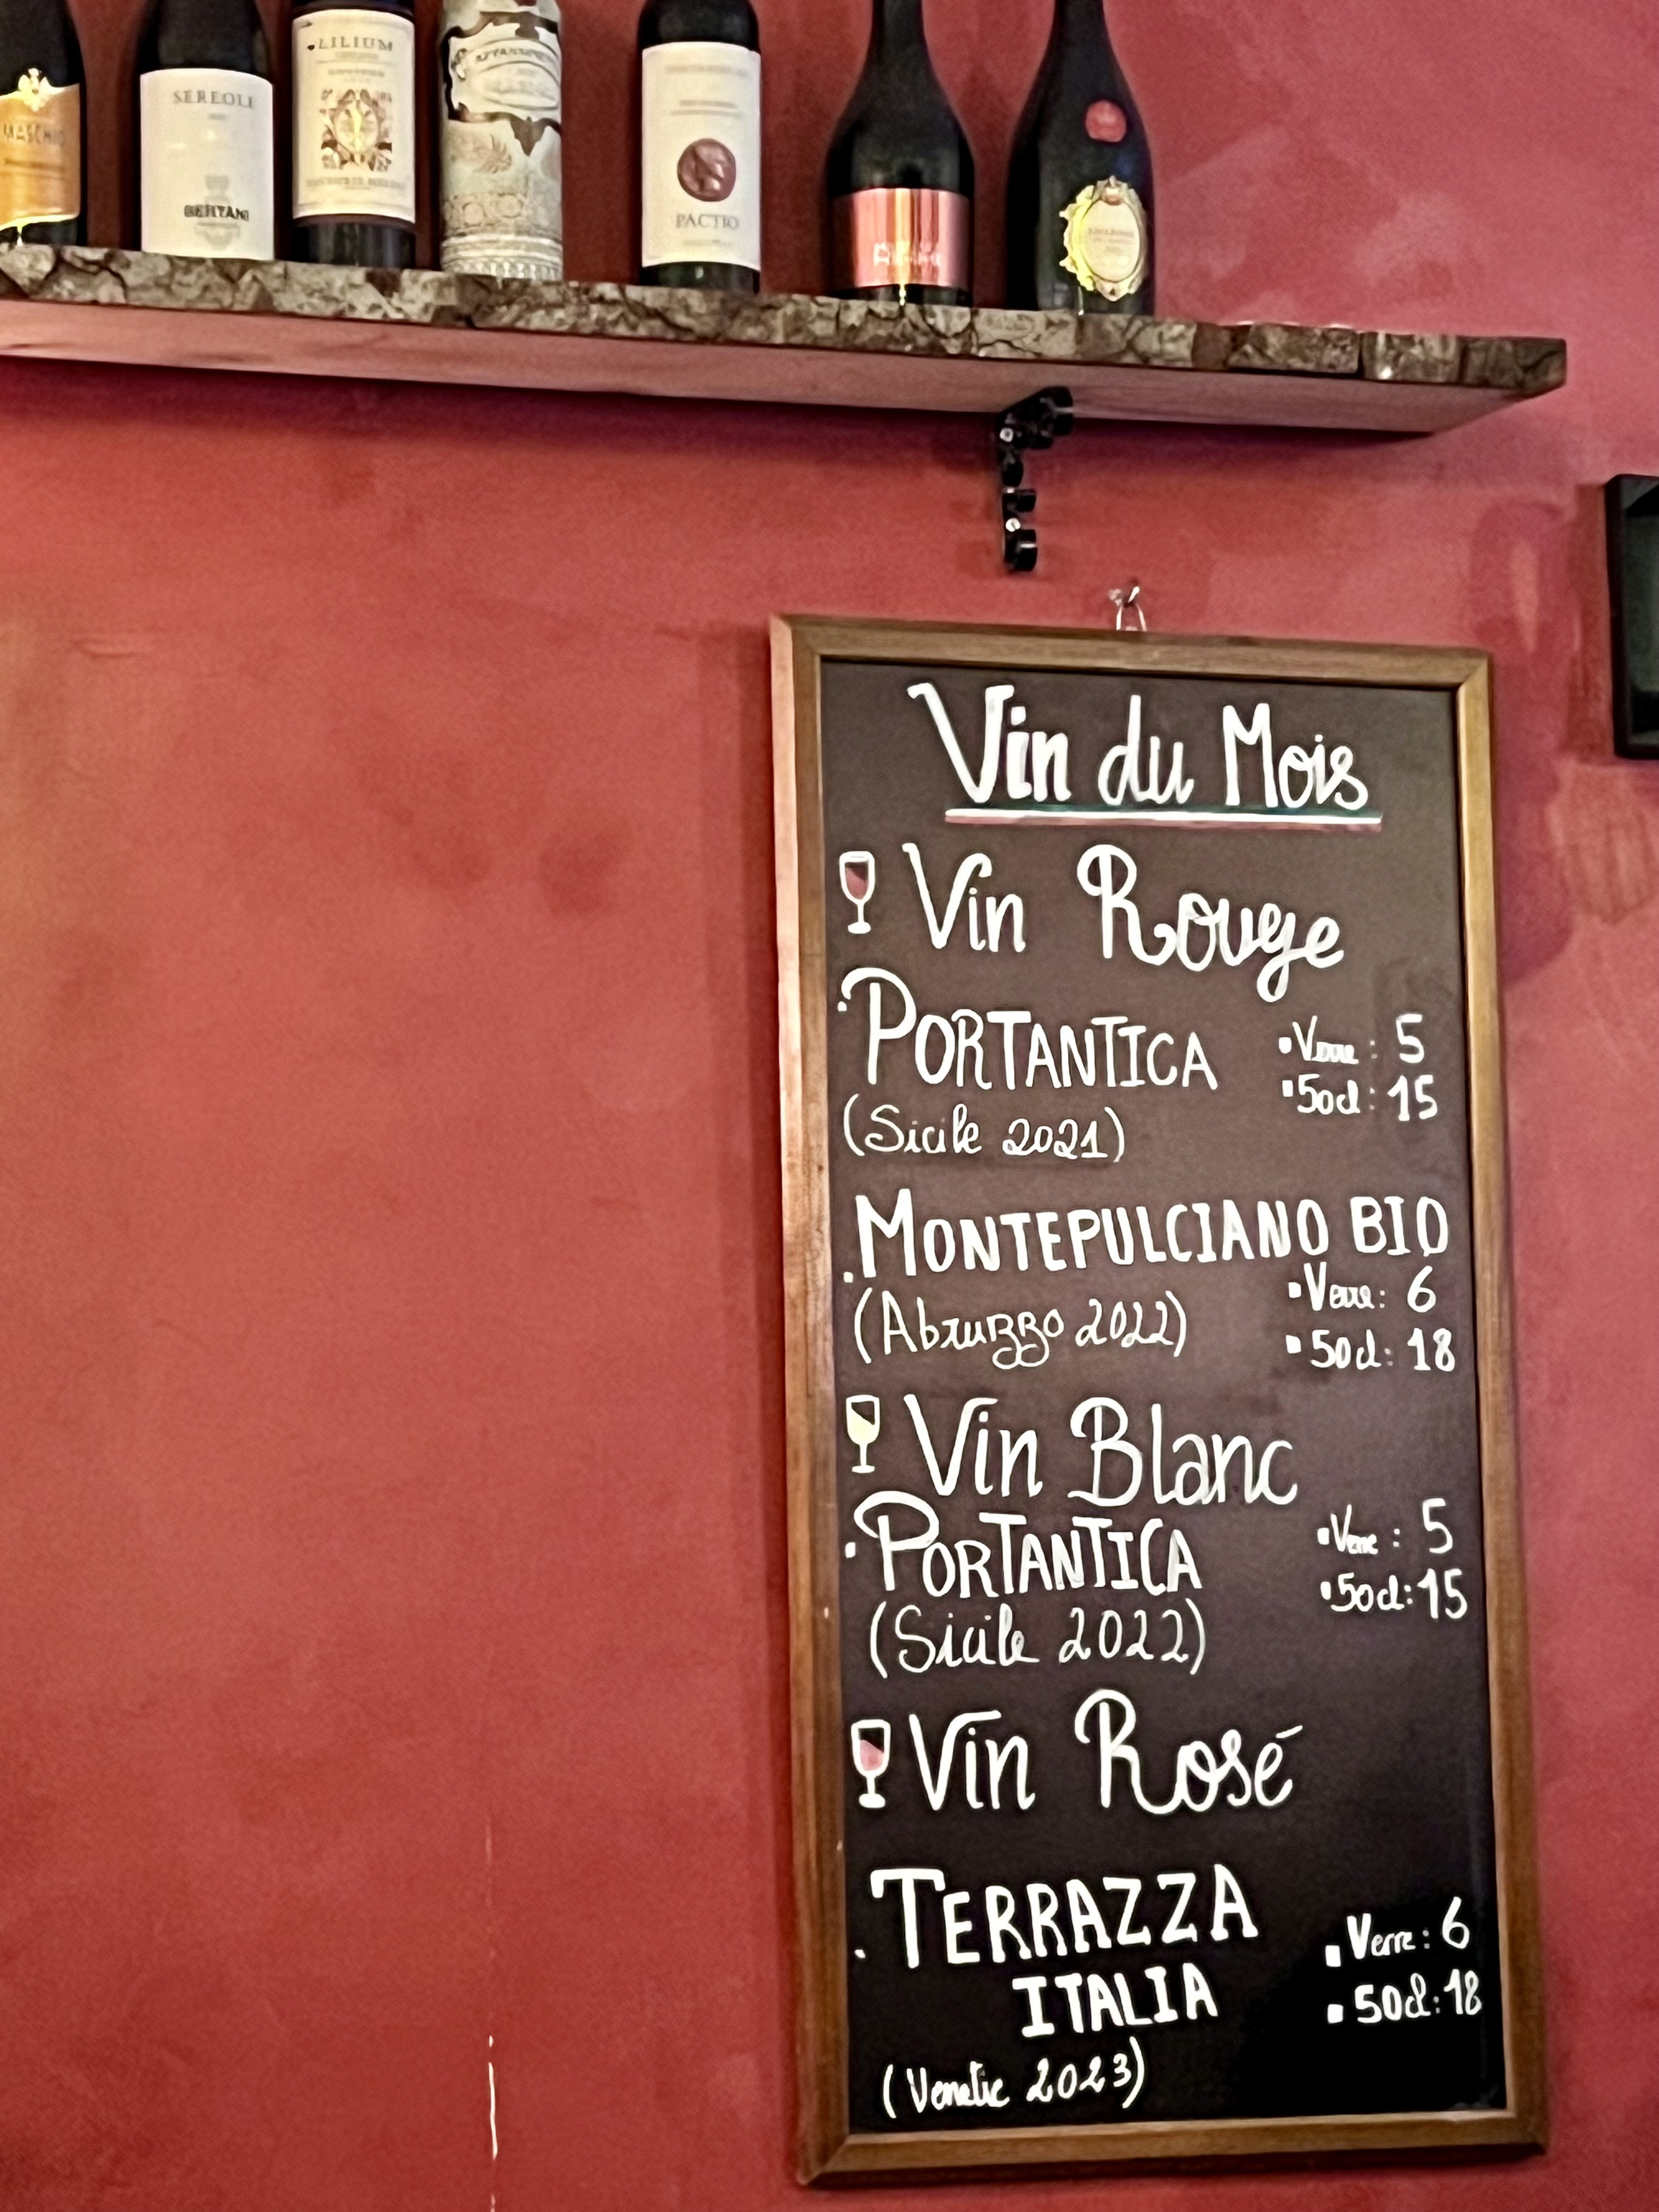 MASCHIO
SEREOLE
BERTANI
LILIUM
PACTIO
Vin du Mois
Vin Rouge
PORTANTICA
• Verre : 5
• 50cl : 15
(Sicile 2021)
MONTEPULCIANO BIO
• Verre : 6
(Abruzzo 2022)
• 50cl : 18
Vin Blanc
• PORTANTICA
• Verre : 5
• 50cl : 15
(Sicile 2022)
Vin Rosé
. TERRAZZA
ITALIA
• Verre : 6
• 50cl : 18
(Venetie 2023)